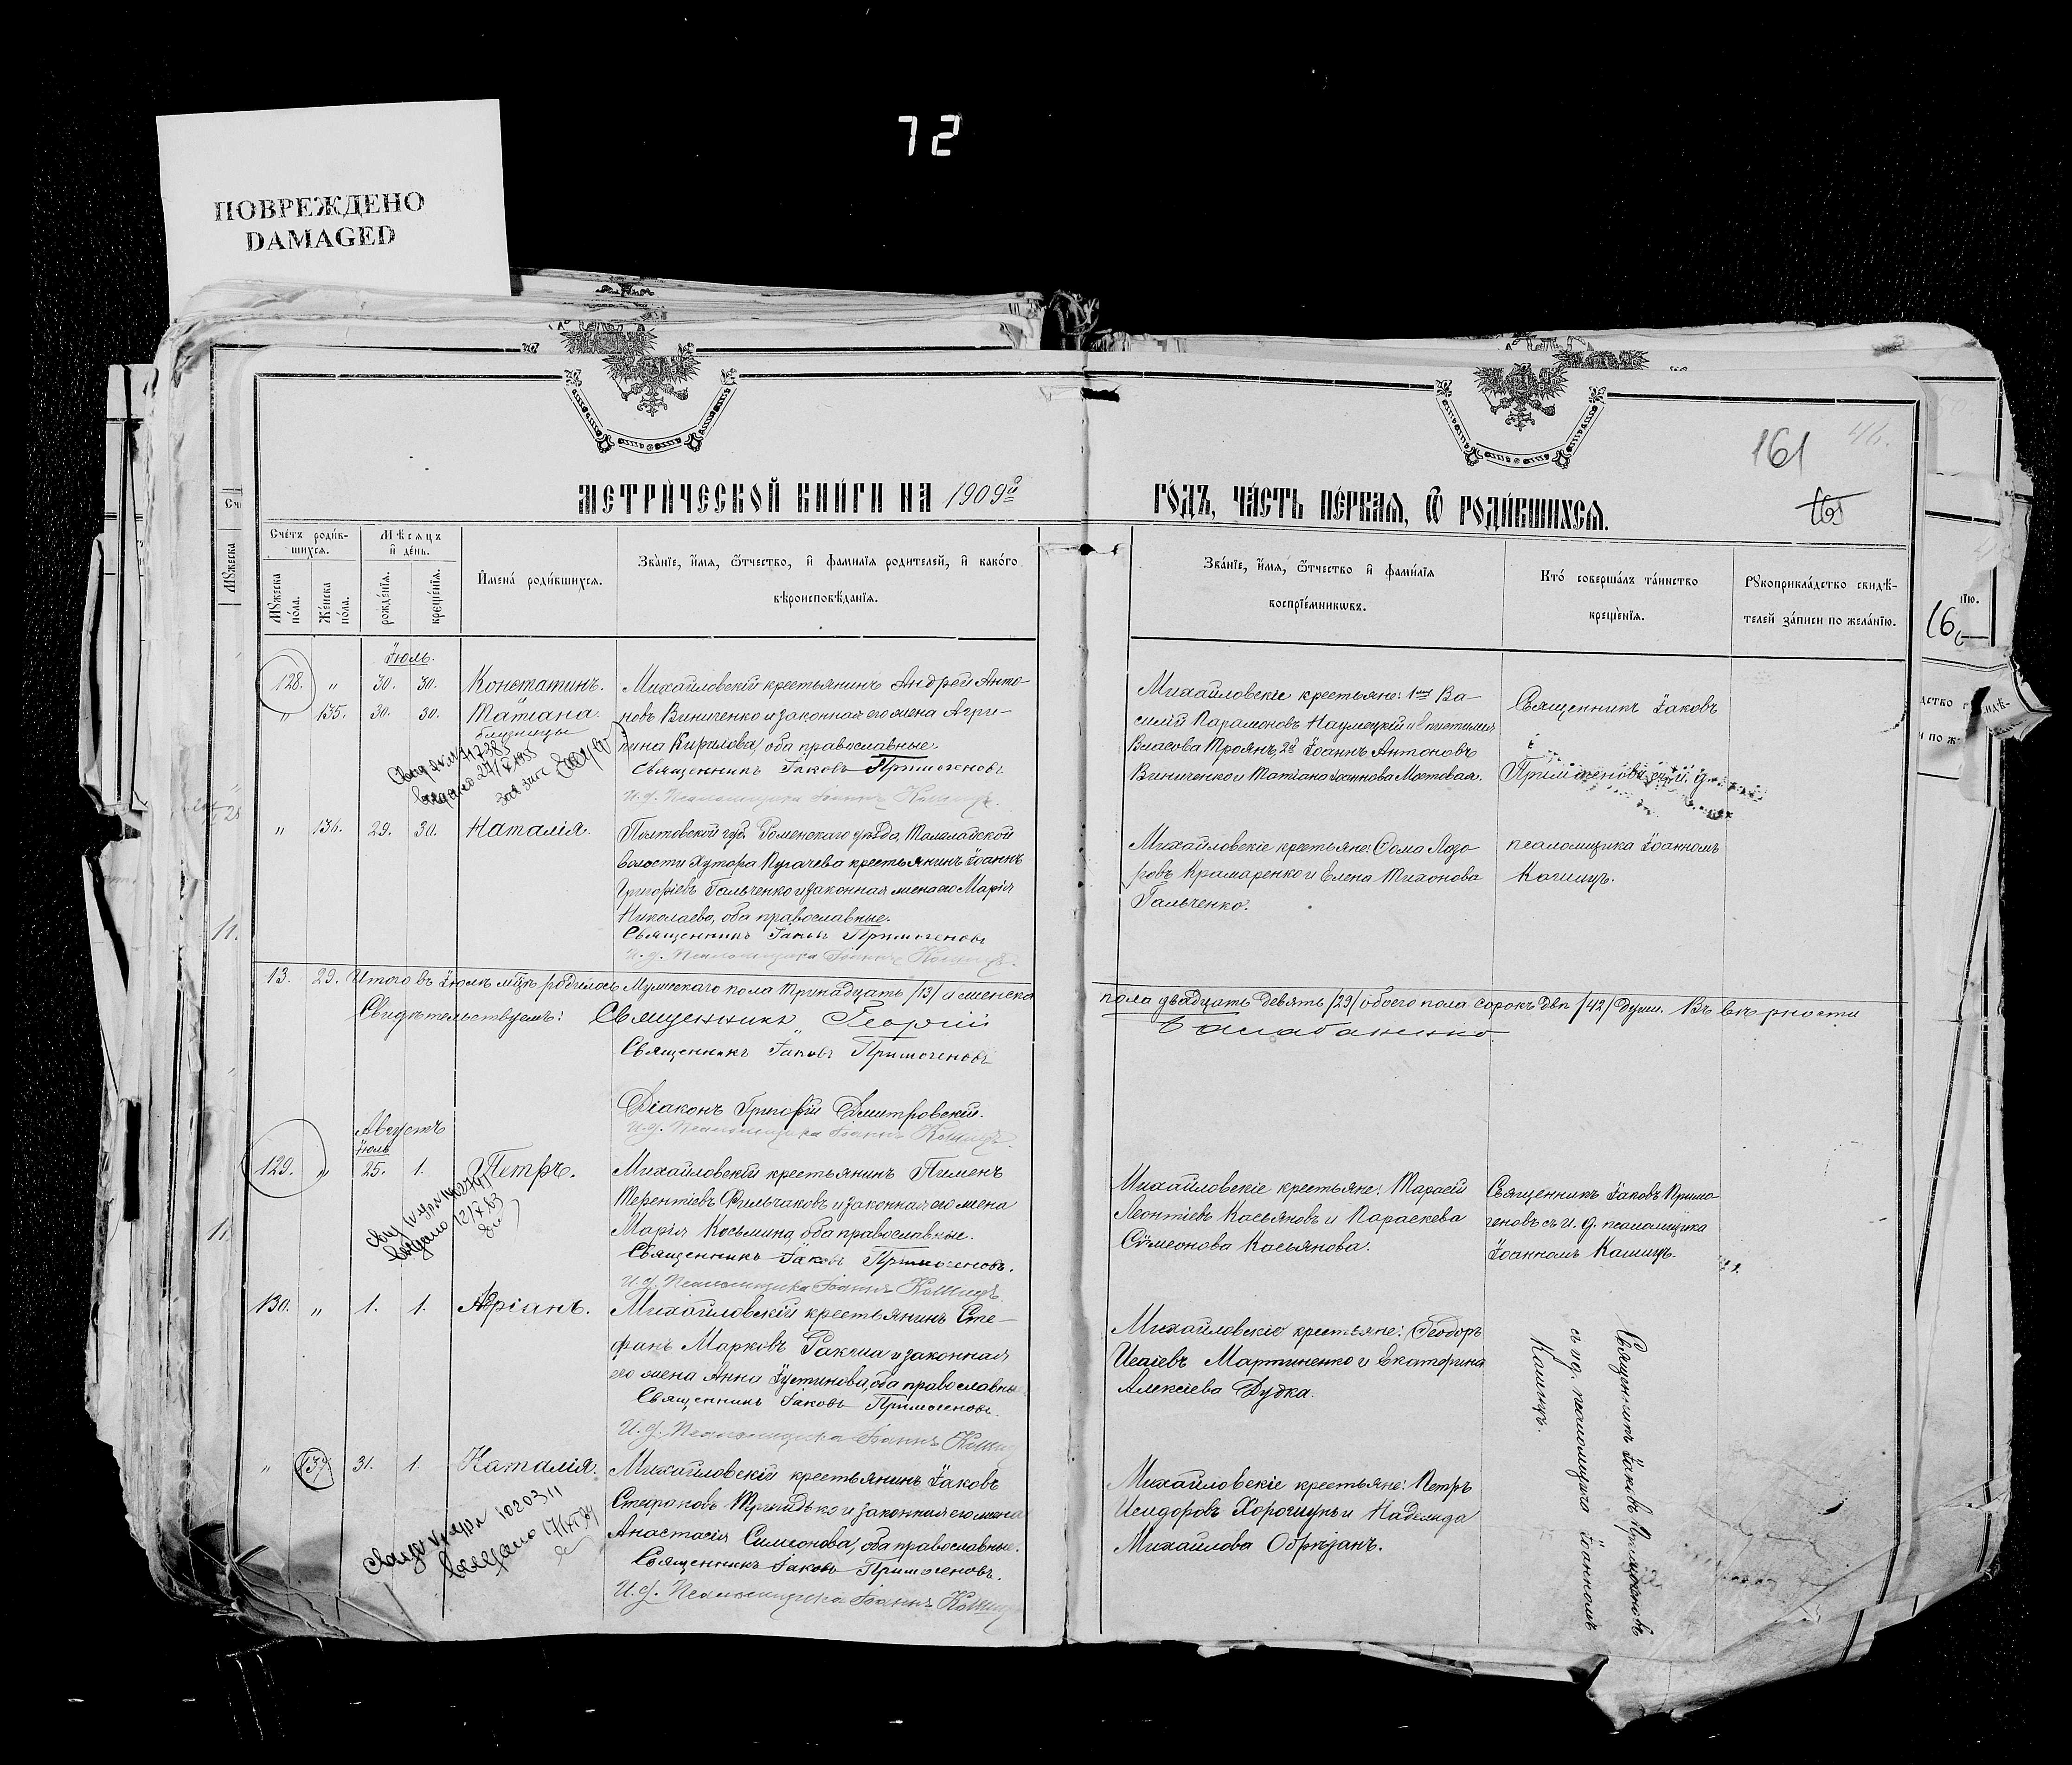 72
ПОВРЕЖДЕНО
DAMAGED
161
46.
165
МЕТРИ́ЧЕСКОЙ КНИ́ГИ НА 1909й ГО́ДЪ, ЧА́СТЬ ПЕ́РВАЯ, Ѿ РОДИ́ВШИХСЯ.
Сче́тъ роди́в-
шихся.
Мѣсяцъ
и҆ де́нь.
Мꙋжеска
по́ла.
Же́нска
по́ла.
рожде́нїя.
креще́нїя.
И҆мена̀ роди́вшихся.
Зва̀нїе, и҆́мя, ѻ҆́тчество, и҆ фами́лїя роди́телей, и҆ како́гѡ
вѣроисповѣ́данїя.
Зва́нїе, и҆́мя, ѻ҆́тчество и҆ фами́лїя
воспрїе́мникѡвъ.
Кто̀ соверша́лъ та́инство
креще́нїя.
Рꙋкоприкла́дство свидѣ́-
телей за́писи по жела́нїю.
Іюль.
128. " 30. 30. Констатинъ.
" 135. 30. 30. Татіана.
близнецы
Михайловскій крестьянинъ Андрей Анто-
новъ Виниченко и законная его жена Агри-
пина Кирилова, оба православные.
Священникъ Іаковъ Примогеновъ
И. д. Псаломщика Іоаннъ Кошицъ.
Михайловскіе крестьяне: 1хъ Ва-
силій Парамоновъ Наумецкій и
Власова Троянъ, 2й Іоаннъ Антоновъ
Виниченко и Татіана Іоаннова Мостовая.
Священникъ Іаковъ
Примогеновъ съ и. д.
псаломщика Іоанномъ
Кошицъ.
" 136. 29. 30. Наталія.
Полтовской губ. Роменскаго уѣзда, Талалайской
волости Хутора Пугачева крестьянинъ Іоаннъ
Григоріевъ Гальченко и законная жена его Марія
Николаева, оба православные.
Священникъ Іаковъ Примогеновъ
И. д. Псаломщика Іоаннъ Кошицъ.
Михайловскіе крестьяне: Ѳома Лазо-
ровъ Крамаренко и Елена Тихонова
Гальченко.
13. 29. Итого въ Іюлѣ мцѣ родилось Мужескаго пола Тринадцать /13/ и женска
пола двадцать девять /29/ обоего пола сорокъ двѣ /42/ души. Въ вѣрности
Свидѣтельствуемъ: Священникъ Георгій
Балабаненко
Священникъ Іаковъ Примогеновъ
Діаконъ Григорій Дмитровскій.
И. д. Псаломщика Іоаннъ Кошицъ.
Августъ
Іюль
129. " 25. 1. Петръ.
Михайловскій крестьянинъ Пименъ
Терентіевъ Фильчаковъ и законная его жена
Марія Косьмина, оба православные.
Священникъ Іаковъ Примогеновъ.
И. д. Псаломщика Іоаннъ Кошицъ.
Михайловскіе крестьяне: Тарасій
Леонтіевъ Касьяновъ и Параскева
Сѵмеонова Касьянова.
Священникъ Іаковъ Примо-
геновъ съ и. д. псаломщика
Іоанномъ Кошицъ.
130. " 1. 1. Адріанъ.
Михайловскій крестьянинъ Сте-
фанъ Марковъ Ракша и законная
его жена Анна Іустинова, оба православны
Священникъ Іаковъ Примогеновъ.
И. д. Псаломщика Іоаннъ Кошиц
Михайловскіе крестьяне: Ѳеодоръ
Исаіевъ Мартиненко и Екатерина
Алексіева Дудка.
Священникъ Іаковъ Примогеновъ
съ и д. псаломщика Іоанномъ
Кошицъ.
" 137. 31. 1. Наталія.
Михайловскій крестьянинъ Іаковъ
Стефановъ и законная его жена
Анастасія Симеонова, оба православные.
Священникъ Іаковъ Примогеновъ.
И. д. Псаломщика Іоаннъ Кошиц
Михайловскіе крестьяне: Петръ
Исидоровъ Хорошунъ и Надежда
Михайлова Обрѣзанъ.